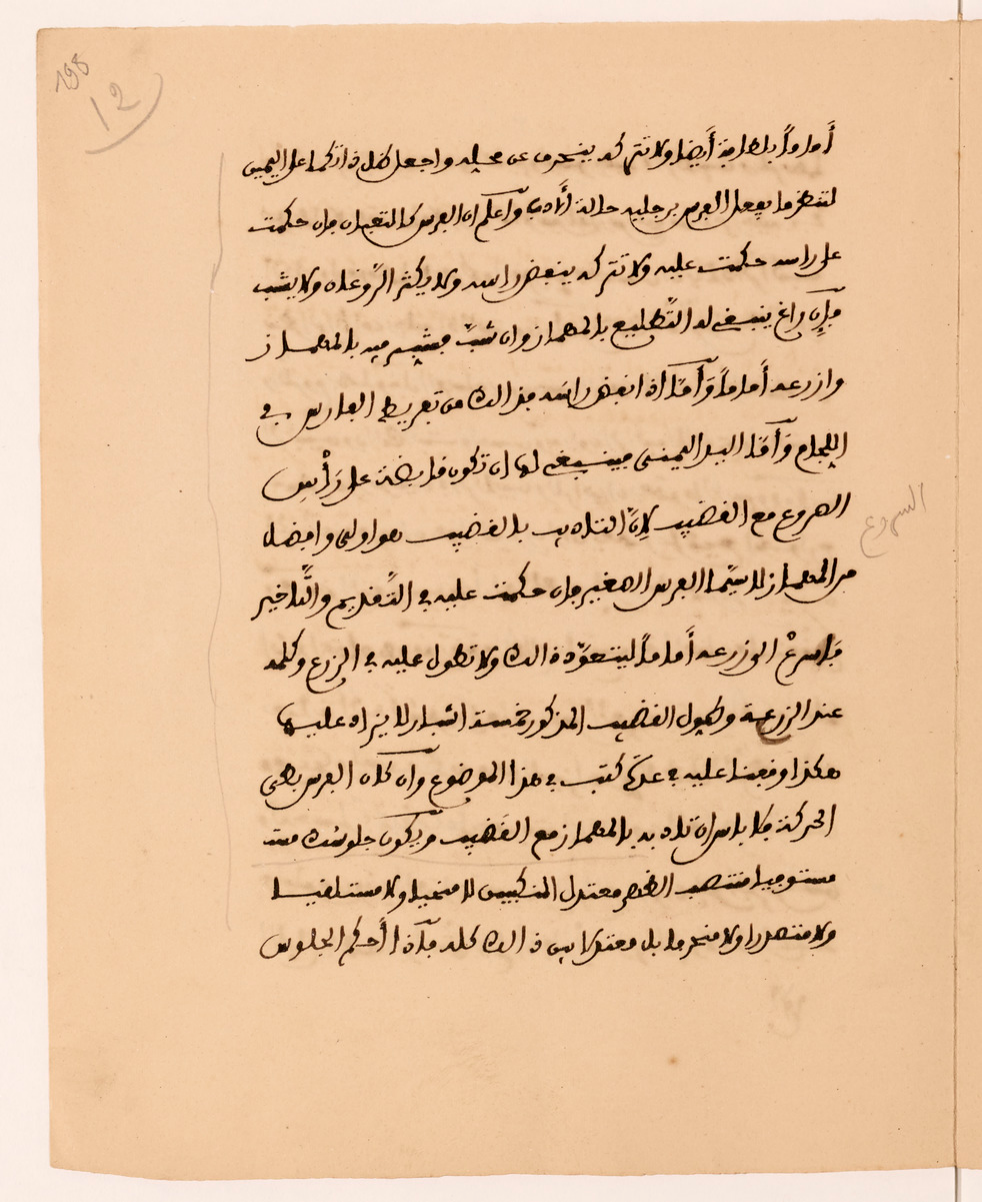 198
12
أماماً بلطافة أيضا ولا تتركه ينحرف عن محله واجعل ظل ذاتكما على اليمين
لتنظر ما يفعل الفرس برجليه حالة أدب وآعلم ان الفرس كالثعبان فإن حكمت
على راسه حكمت عليه ولا تتركه ينفض راسه ولا يكثر الرّوغان ولا يشب
فإن راغ ينبغي له التّطليع بالمهماز وان شبّ فشبر فيه بالمهماز
وازرعه أماماً وَأمّا اذا نفض راسَه فذالك من تفريط الفارس في
اللجام وَأمّا اليد اليمنى فينبغي لها ان تكون قابضة على رَأْسِ
الصروع مع القضيب لِانّ التاديب بالقضيب هو اولى وافضل
السروع
من المهماز لا سيّما الفرس الصغير فإن حكمت عليه في التّقديم والتّاخير
فَاسرعْ الى زرعه أماماً ليتعوّد ذالك ولا تطول عليه في الزرع وكلمه
عند الزرعة وطول القضيب المذكور خمسة اشبار لا يزاد عليها
هكذا وقعنا عليه في عدّة كتب في هذا الموضوع وان كان الفرس بطئ
الحركة فلا باس ان تادبه بالمهماز مع القضيب ويكون جلوسك
مستوميا منتصب الظهر معتدل المنكبين لا منحنيا ولا مستلقيا
ولا متصدرا ولا منحرفا بل معتدلا بين ذالك كله فإذا أحكم الجلوس